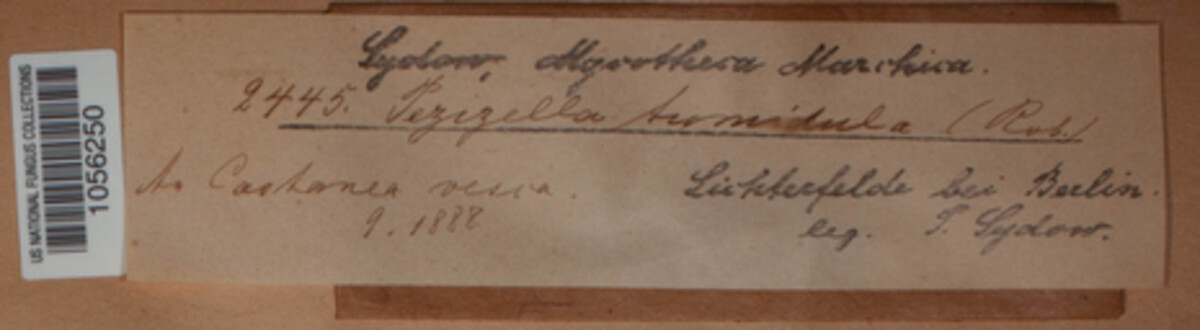 US NATIONAL FUNGUS COLLECTIONS
1056250
Sydow, Mycotheca Marchica.
2445. Pezizella tumidula (Rob.)
An Castanea vesca.
9. 1888
Lichterfelde bei Berlin.
leg. P. Sydow.